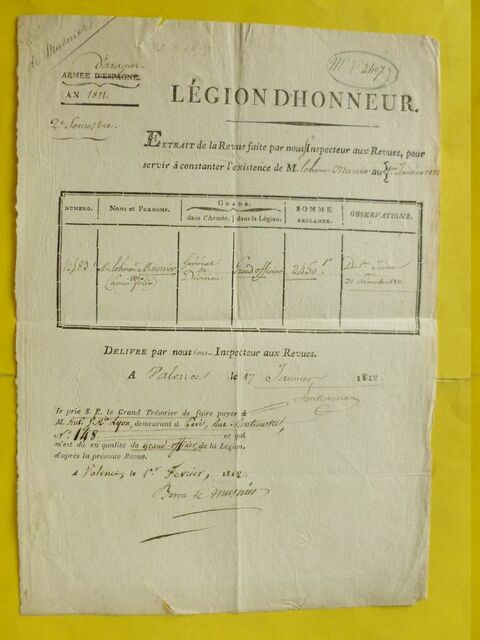 de Musnier
d'aragon
ARMÉE D'ESPAGNE.
AN 1811.
2e. Semestre.
LÉGION D'HONNEUR.
EXTRAIT de la Revue faite par nous Inspecteur aux Revues, pour
servir à constanter l'existence de M. le baron Musnier au 1er Janvier 1812
NUMÉRO. NOMS ET PRÉNOMS. GRADE: dans l'Armée. dans la Légion. SOMME RÉCLAMÉE. OBSERVATIONS.
le baron Musnier Louis félix Général de Division Grand officier 2450 f.
DÉLIVRÉ par nous sous-Inspecteur aux Revues.
A Valence le 17 Janvier 1812.
Je prie S. E. le Grand Trésorier de faire payer à
M. Lyon, demeurant à Paris, Rue Montmartre
N.° 148 ce qui
m'est dû en qualité de grand officier de la Légion,
d'après la présente Revue.
A Valence, le 1er Février, 1812
Baron de Musnier